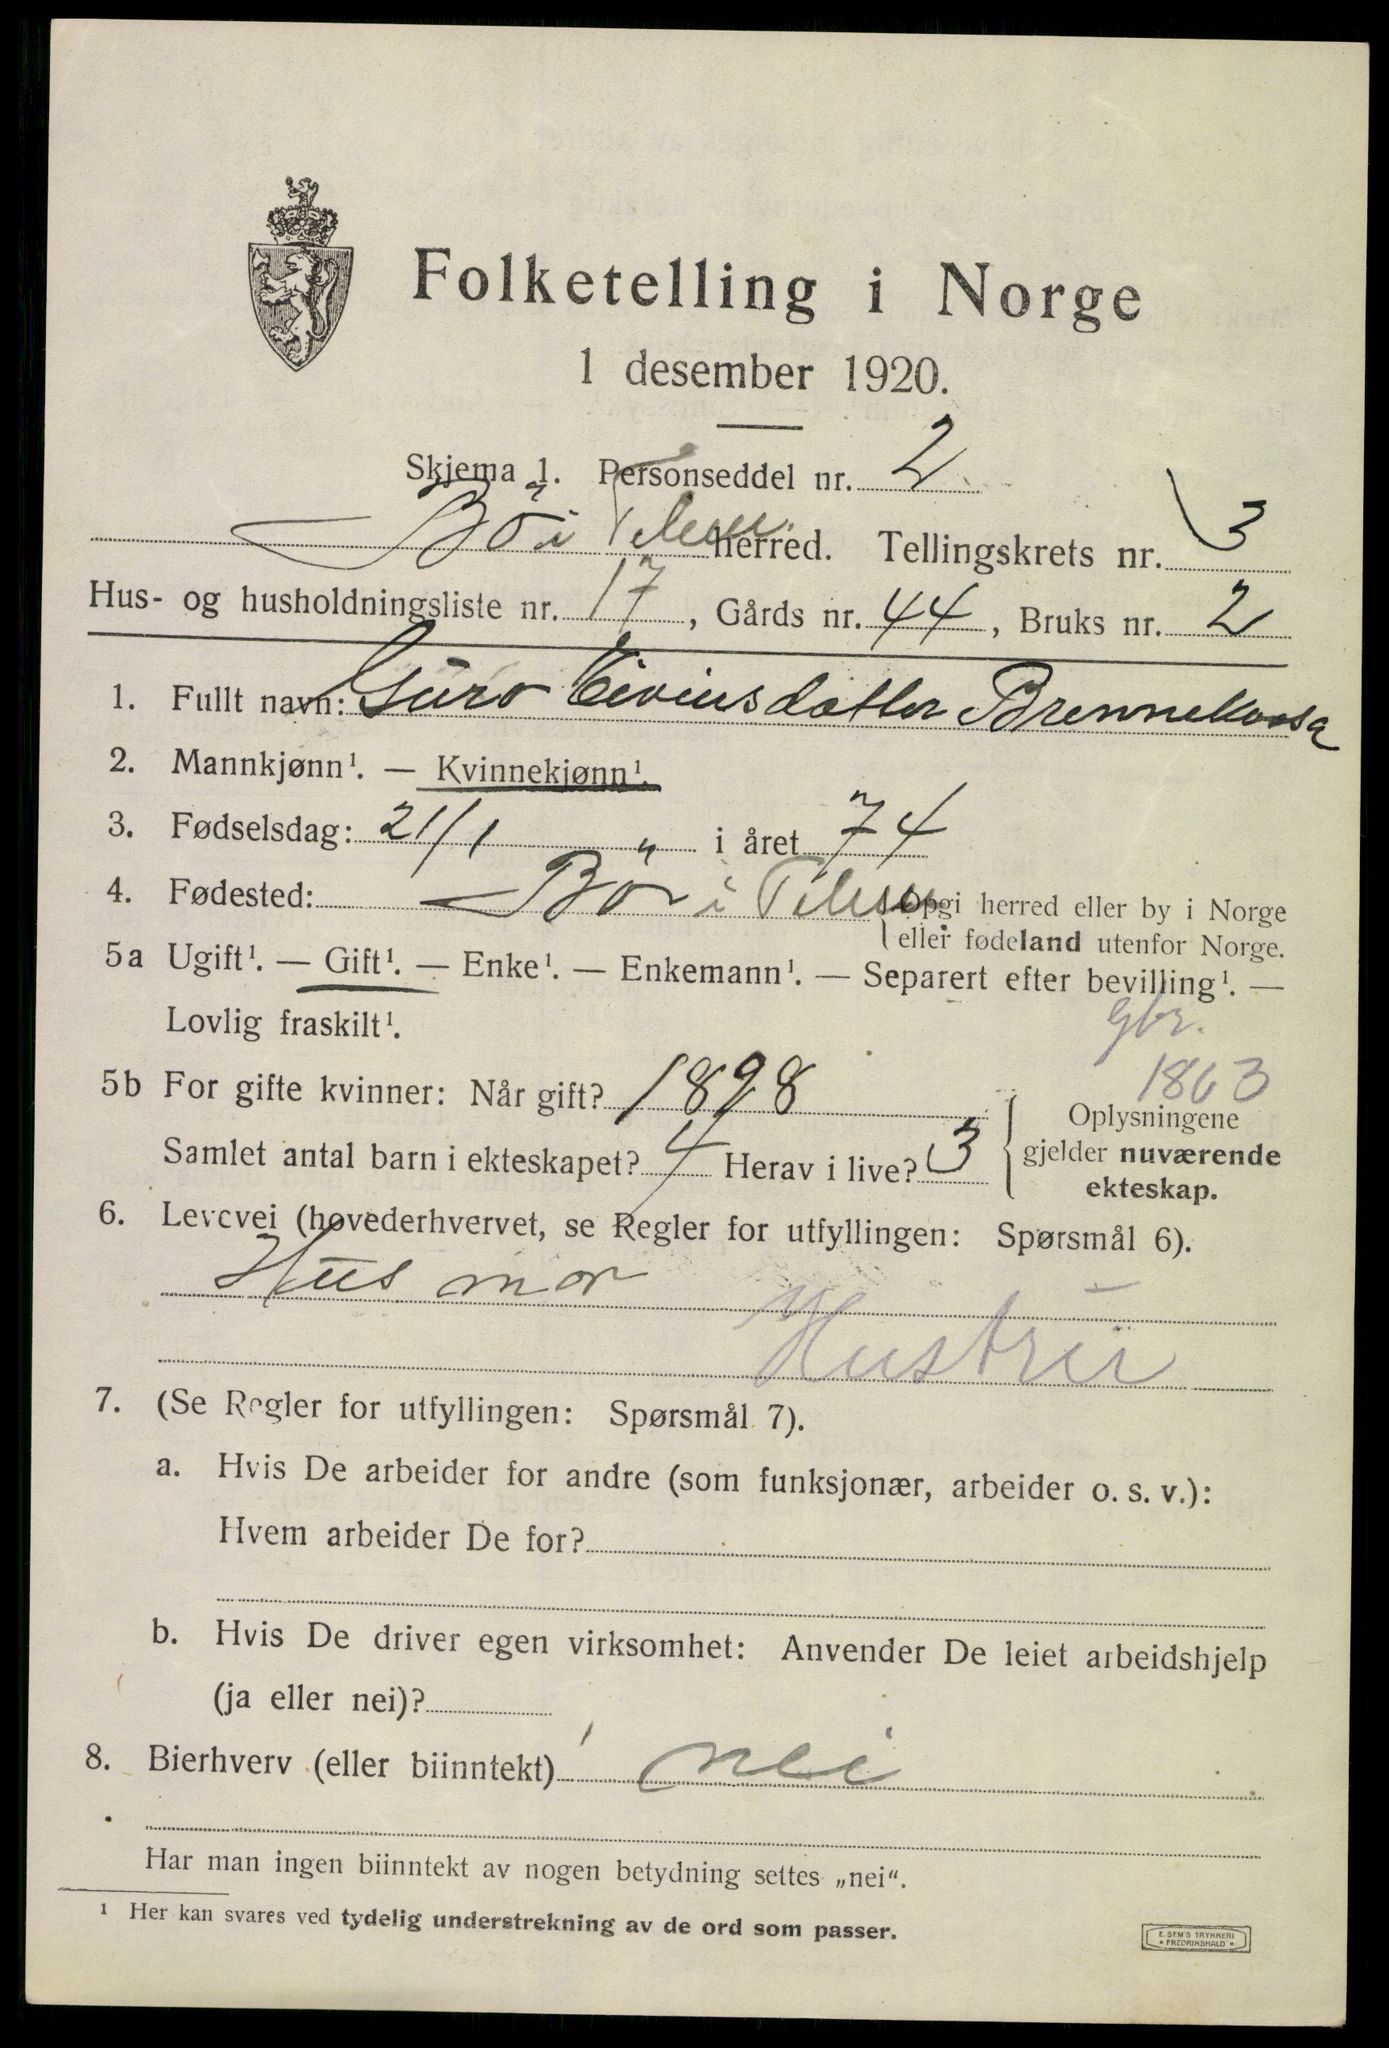 Folketelling i Norge
1 desember 1920.
Skjema 1. Personseddel nr. 2
Bö i Telem. herred. Tellingskrets nr. 3
Hus- og husholdningsliste nr. 17, Gårds nr. 44, Bruks nr. 2
1. Fullt navn: Guro Eivinsdatter
2. Mannkjønn¹. — Kvinnekjønn¹.
3. Fødselsdag: 21/1 " i året 74
4. Fødested: Bö i Telem. Opgi herred eller by i Norge
eller fødeland utenfor Norge.
5a Ugift¹. — Gift¹. — Enke¹. — Enkemann¹. — Separert efter bevilling¹. —
Lovlig fraskilt¹.
gbr.
1863
5b For gifte kvinner: Når gift? 1898
Samlet antal barn i ekteskapet? 4 Herav i live? 3
Oplysningene
gjelder nuværende
ekteskap.
6. Levevei (hovederhvervet, se Regler for utfyllingen: Spørsmål 6).
Husmor
Hustru
7. (Se Regler for utfyllingen: Spørsmål 7).
a. Hvis De arbeider for andre (som funksjonær, arbeider o. s. v.):
Hvem arbeider De for?
b. Hvis De driver egen virksomhet: Anvender De leiet arbeidshjelp
(ja eller nei)?
8. Bierhverv (eller biinntekt) nei
Har man ingen biinntekt av nogen betydning settes „nei“.
¹ Her kan svares ved tydelig understrekning av de ord som passer.
E. SEM'S TRYKKERI
* FREDRIKSHALD *